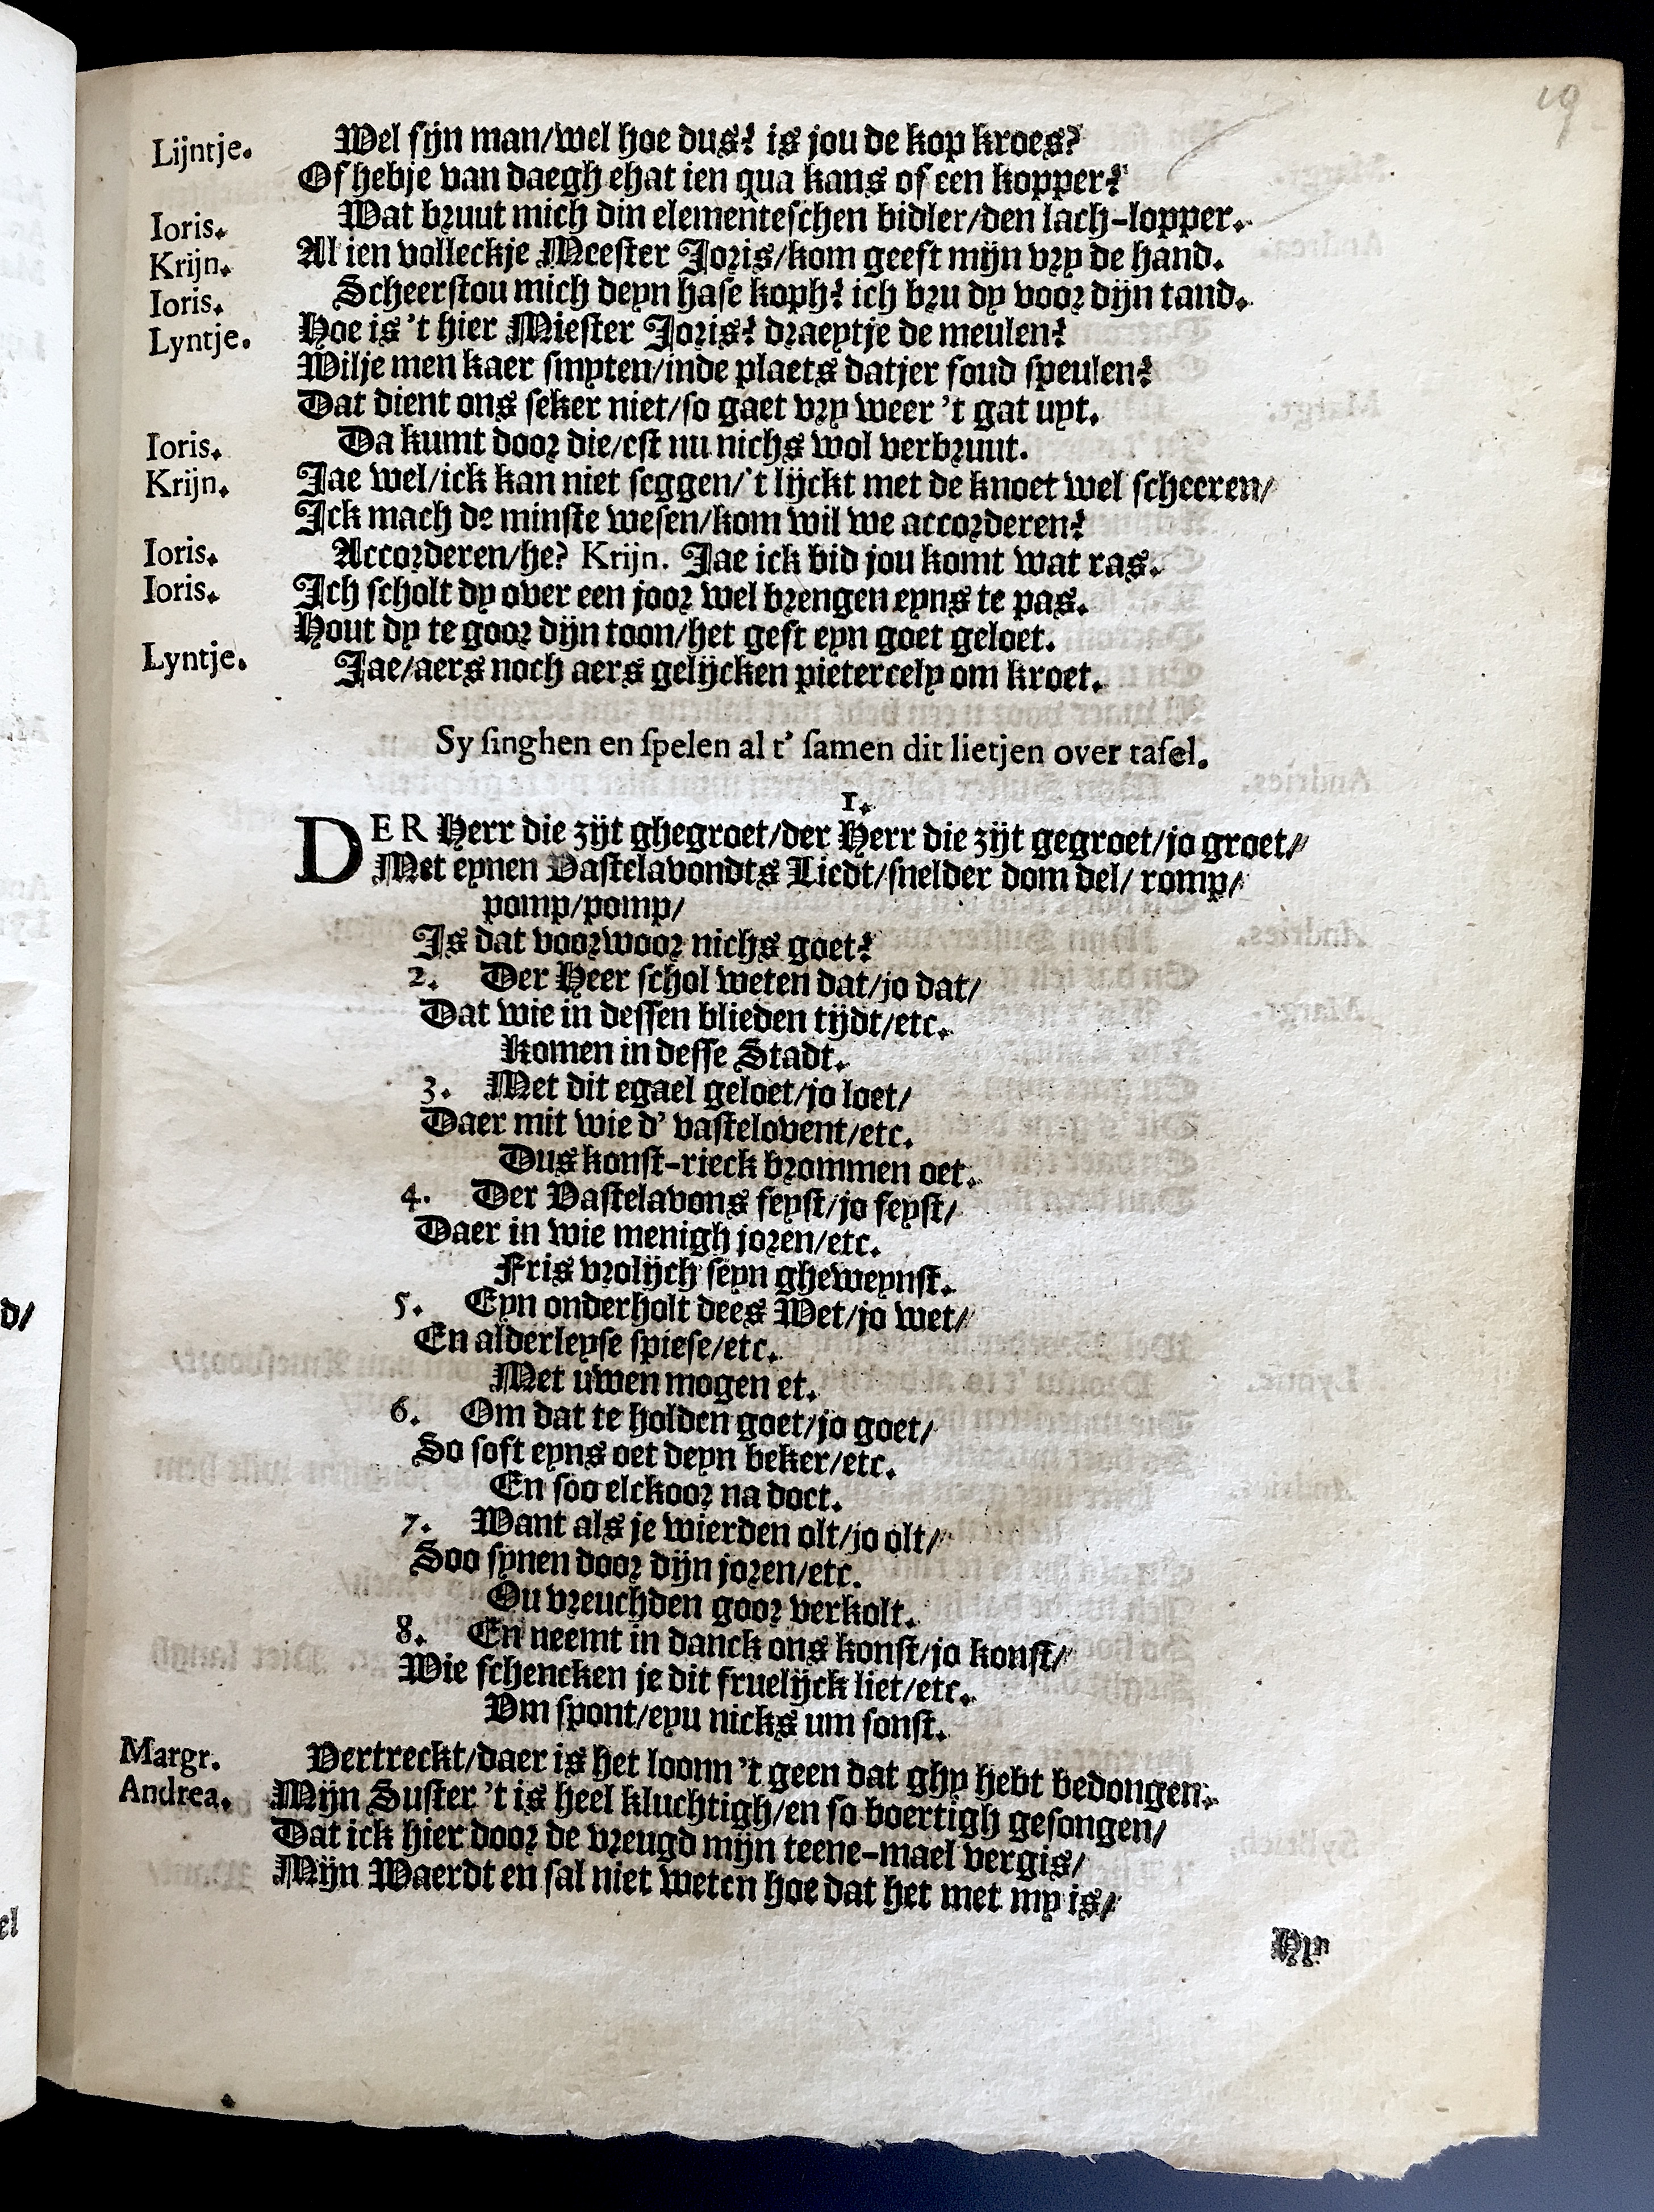 19
Lijntje. Wel sijn man/wel hoe dus? is jou de kop kroes?
Of hebje van daegh ehat ien qua kans of een kopper?
Ioris. Wat bruut mich din elementeschen bidler/den lach-lopper.
Krijn. Al ien volleckje Meester Joris/kom geeft mijn vry de hand.
Ioris. Scheerstou mich deyn hase koph? ich bru dy voor dijn tand.
Lyntje. Hoe is 't hier Miester Joris? draeytje de meulen?
Wilje men kaer smyten/inde plaets datjer soud speulen?
Dat dient ons seker niet/so gaet vry weer 't gat uyt.
Ioris. Da kumt door die/est nu nichs wol verbruut.
Krijn. Jae wel/ick kan niet seggen/'t lijckt met de knoet wel scheeren/
Ick mach de minste wesen/kom wil we accorderen?
Ioris. Accorderen/he? Krijn. Jae ick bid jou komt wat ras.
Ioris. Ich scholt dy over een joor wel brengen eyns te pas.
Hout dy te goor dijn toon/het gest eyn goet geloet.
Lyntje. Jae/aers noch aers gelijcken pietercely om kroet.
Sy singhen en spelen al t' samen dit lietjen over tafel.
1.
DER Herr die zijt ghegroet/der Herr die zijt gegroet/jo groet/
Met eynen Vastelavondts Liedt/snelder dom del/ romp/
pomp/pomp/
Is dat voorwoor nichs goet?
2. Der Heer schol weten dat/jo dat/
Dat wie in dessen blieden tijdt/etc.
Komen in desse Stadt.
3. Met dit egael geloet/jo loet/
Daer mit wie d' vastelovent/etc.
Dus konst-rieck brommen oet.
4. Der Vastelavons feyst/jo feyst/
Daer in wie menigh joren/etc.
Fris vrolijch seyn gheweynst.
5. Eyn onderholt dees Wet/jo wet/
En alderleyse spiese/etc.
Met uwen mogen et.
6. Om dat te holden goet/jo goet/
So soft eyns oet deyn beker/etc.
En soo elckoor na doet.
7. Want als je wierden olt/jo olt/
Soo synen door dijn joren/etc.
Ou vreuchden goor verkolt.
8. En neemt in danck ons konst/jo konst/
Wie schencken je dit fruelijck liet/etc.
Um spont/eyu nicks um sonst.
Margr. Vertreckt/daer is het loonn 't geen dat ghy hebt bedongen.
Andrea. Mijn Suster 't is heel kluchtigh/en so boertigh gesongen/
Dat ick hier door de vreugd mijn teene-mael vergis/
Mijn Waerdt en sal niet weten hoe dat het met my is/
Hy